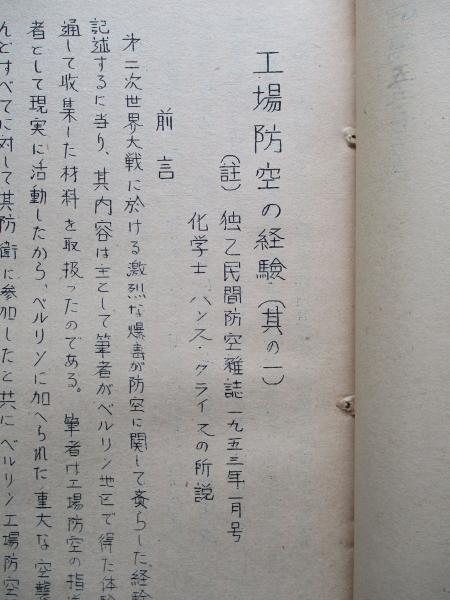 工場防空の経験（其の一）
（註）独乙民間防空雑誌一九五三年一月号
化学士 ハンス・クライスの所説
前言
第二次世界大戦に於ける激烈な爆弾が防空に関して齎らした経験
記述するに当り、其内容は主として筆者がベルリン地区で得た体験
通して収集した材料を取扱ったのである。筆者は工場防空の指
者として現実に活動したから、ベルリンに加へられた重大な空襲
んどすべてに対して其防衛に参加したと共にベルリン工場防空